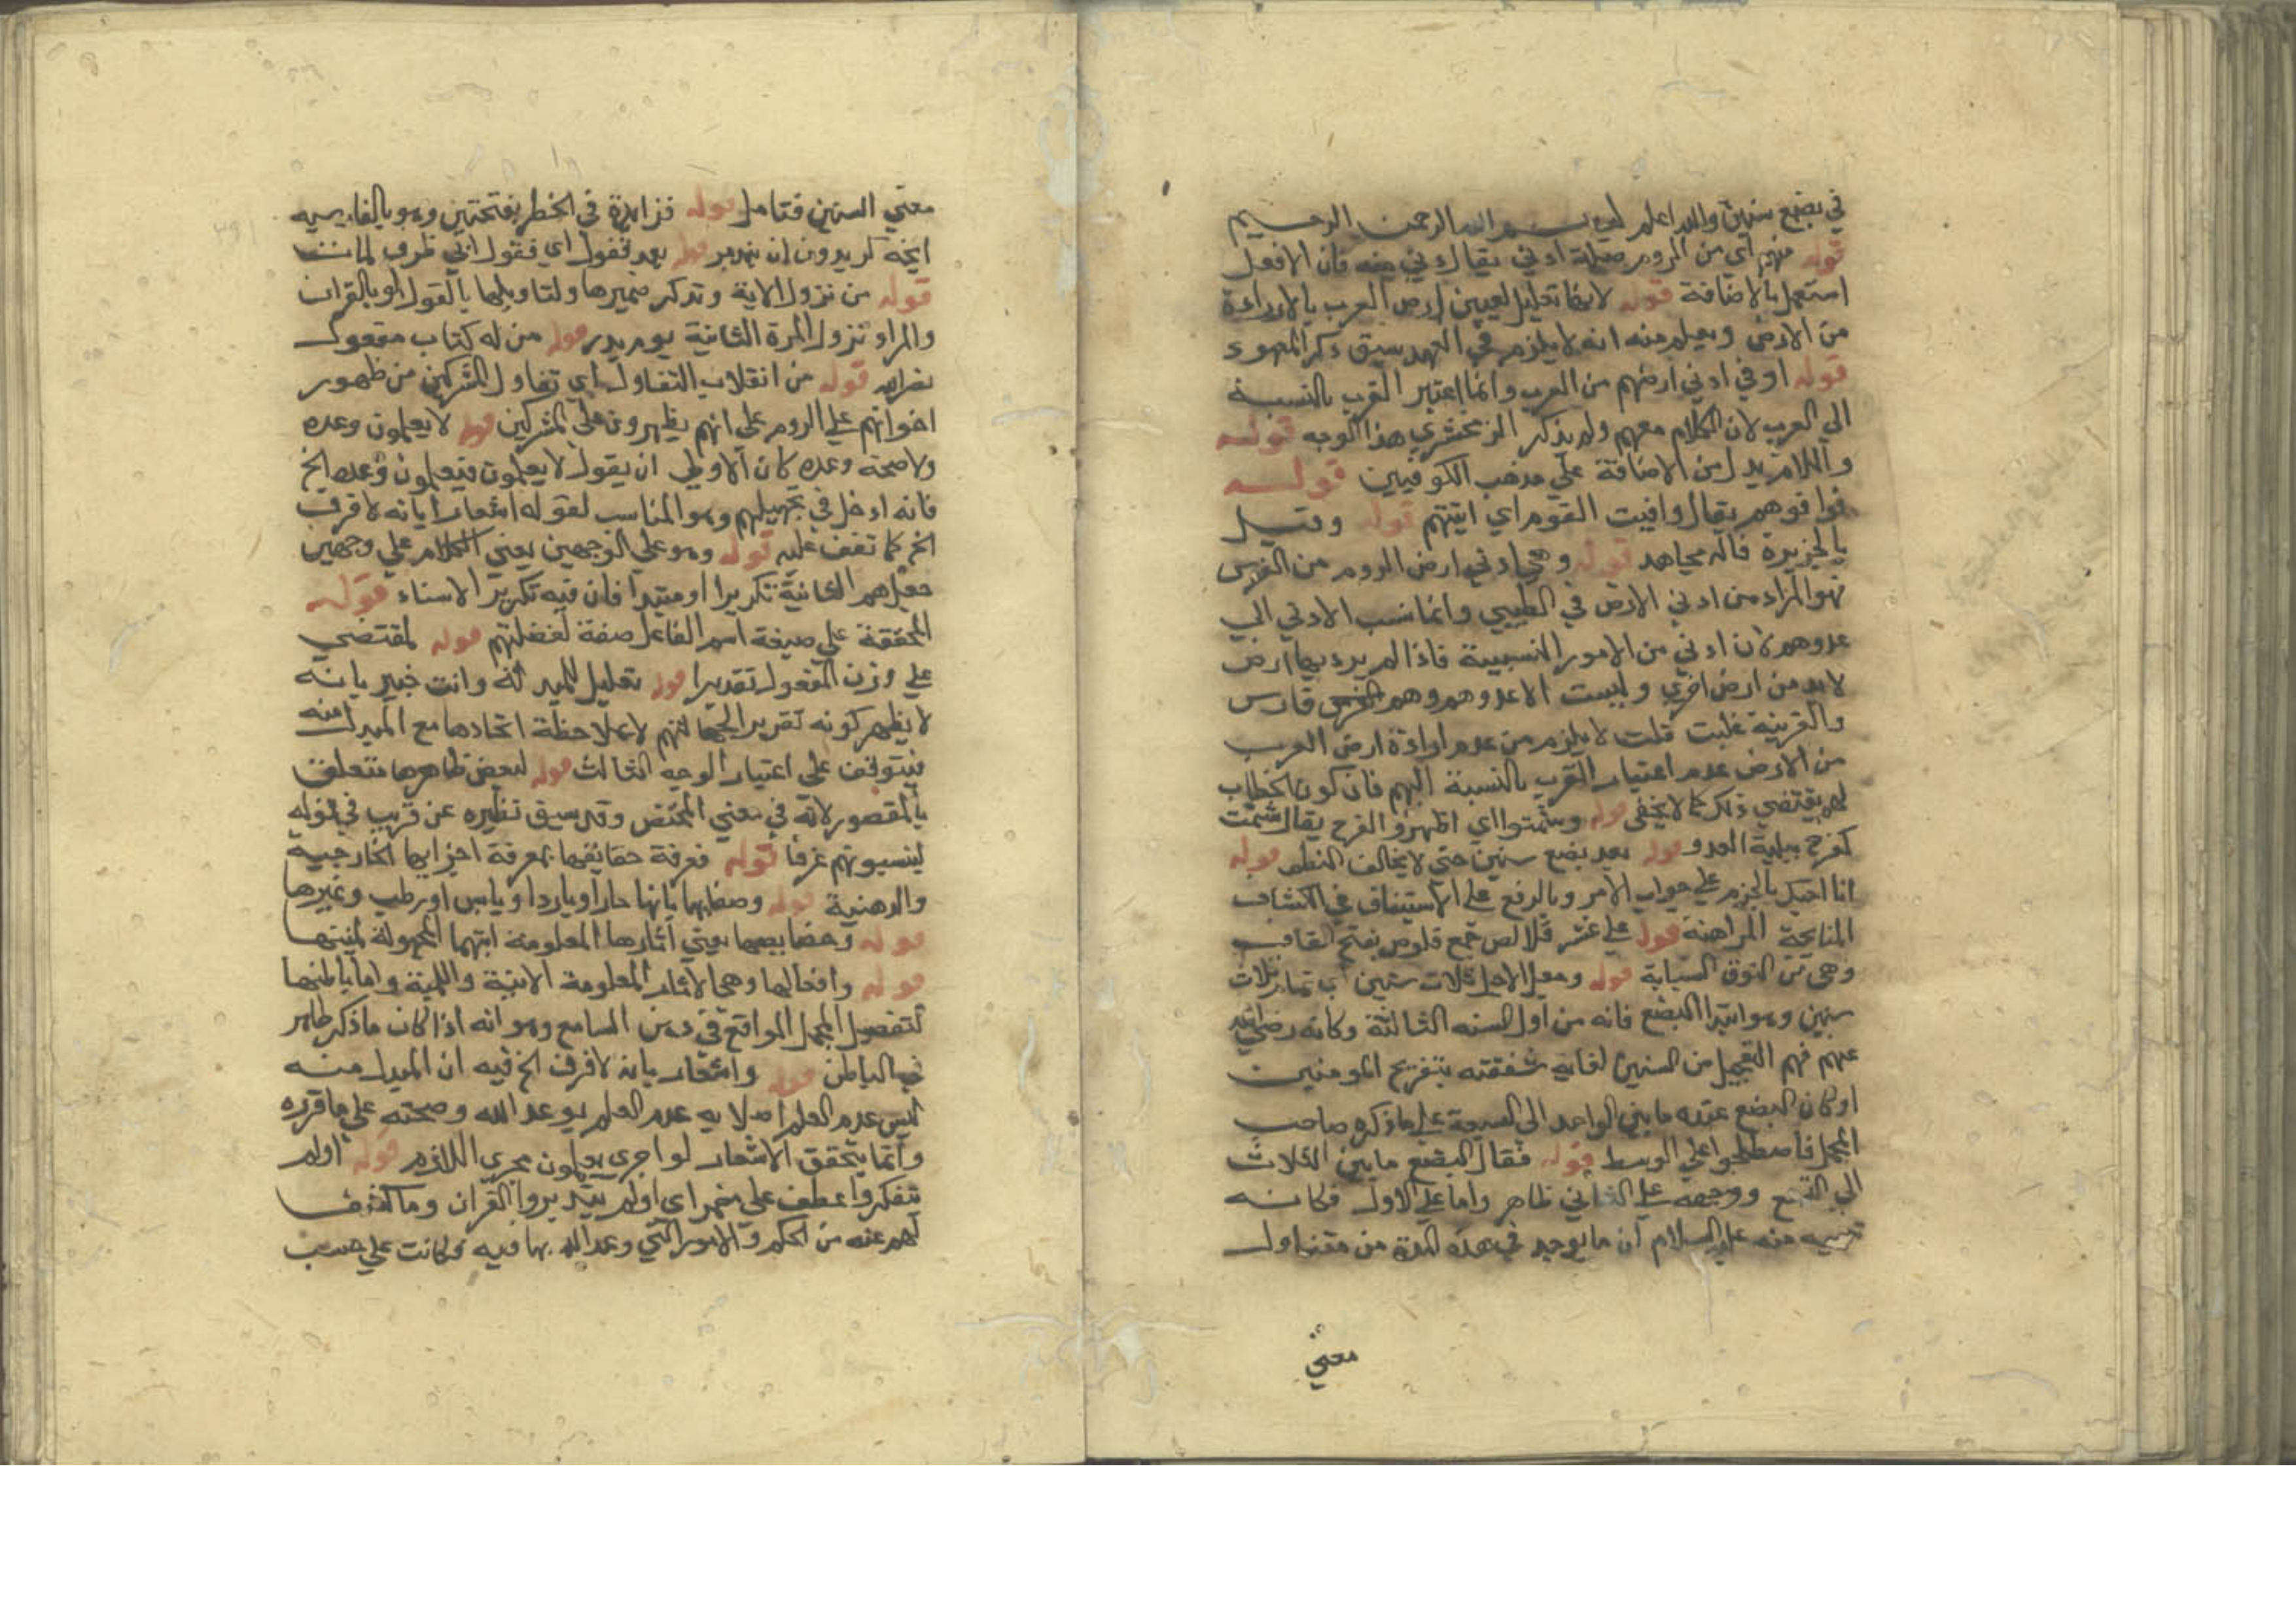 في بضع سنين والله اعلم بسم الله الرحمن الرحيم
قوله منهم اي من الروم صلة ادني يقال دني منه فان الافعل
استعمل بالاضافة قوله لانها تعليل لعيين ارض العرب بالارادة
من الارض ويعلم منه انه لا يلزم في العهد سبق ذكر المعهود
قوله او في ادني ارضهم من العرب وانما اعتبر القرب بالنسبة
الي العرب لان الكلام معهم ولم يذكر الزمخشري هذا الوجه قوله
واللام بدل من الاضافة علي مذهب الكوفيين قوله
فوافوهم يقال وافيت القوم اي اتيتهم قوله وقيل
بالجزيرة قاله مجاهد قوله وهي ادني ارض الروم من الفرس
فهو المراد من ادني الارض في الطيبي وانما نسب الادني الي
عدوهم لان ادني من الامور النسبية فاذا لم يرد بها ارض
لابد من ارض اخري وليست الا عدوهم وهم فارس
والقرينة غلبت قلت لا يلزم من عدم ارادة ارض العرب
من الارض عدم اعتبار القرب بالنسبة اليهم فان كون الخطاب
لهم يقتضي ذلك كما لا يخفي قوله وشمتوا اي اظهروا الفرح يقال شمت
كفرح ببلية العدو قوله بعد بضع سنين حتي لا يخالف النظم قوله
انا احبك بالجزم علي جواب الامر وبالرفع علي الاستيناف في الكشاف
المناحبة المراهنة قوله علي عشر قلائص جمع قلوص بفتح القاف
وهي من النوق الشابة قوله وجعل الاجل ثلاث سنين اب تمام ثلاث
سنين وهو ابتدا البضع فانه من اول السنه الثالثة وكانه رضي الله
عنهم فهم التعجيل من السنين لغاية شفقته بتفريح المومنين
او كان البضع عنده ما بين الواحد الي السبعة علي ما ذكره صاحب
المجمل فاصطلحوا علي الوسط قوله فقال البضع ما بين الثلاث
الي التسع ووجهه علي الثاني ظاهر واما علي الاول فكانه
منه عليه السلام ان ما يوجد في هذه المدة من متناول
معني
معني السنين فتامل قوله فزايده في الخطر بفتحتين وهو بالفارسيه
ايخه كريدون ان بندبر قوله بعد فنقول اي فنقول
قوله من نزول الاية وتذكر ضميرها ولتاويلها بالقول او بالقران
والمراد نزول المرة الثانية يوم بدر قوله من له كتاب مفعول
نصرالله قوله من انقلاب التفاول اي تفاول المشركين من ظهور
اخوانهم علي الروم علي انهم يظهرون علي المشركين قوله لا يعلمون وعده
ولا صحة وعده كان الاولي ان يقول لا يعلمون فيعلمون وعده الخ
فانه ادخل في تجهيلهم وهو المناسب لقوله اشعارا بانه لا فرق
الخ كما تقف عليه قوله وهو علي الوجهين يعني الكلام علي وجهين
جعل هم الثانية تكريرا او مبتدا فان فيه تكرير الاسناد قوله
المحققة علي صيغة اسم الفاعل صفة لغفلتهم قوله لمقتضي
علي وزن المفعول تقديرا قوله تعليل وانت خبير بانه
لا يظهر كونه تقرير الجهالتهم لا بملاحظة اتحادها مع المبدل منه
فيتوقف علي اعتبار الوجه الثالث قوله لبعض ظاهرها متعلق
بالمقصور لانه في معني المختص وقد سبق نظيره عن قريب في قوله
لينسبونهم عرفا قوله فمعرفة حقائقها بمعرفة اجزايها الخارجية
والذهنية قوله وصفاتها بانها حار او بارد او يابس او رطب وغيرها
قوله وخصايصها يعني اثارها المعلومة
قوله وافعالها وهي الاثار المعلومة الانية واللمية واما باطنها
لتفصيل المجمل الواقع في ذهن السامع وهو انه اذا كان ما ذكر ظاهر
الباطن قوله واشعار بانه لا فرق الخ فيه ان المبدل منه
ليس عدم العلم اصلا به عدم العلم بوعد الله وصحته علي ما قرره
وانما يتحقق الاشعار لو اجري يعلمون مجري اللازم قوله اولم
يتفكروا عطف علي مضمر اي اولم يتدبروا القران وما كشف
لهم عنه من الحكم والامور التي وعد الله بها فيه وكانت علي حسب